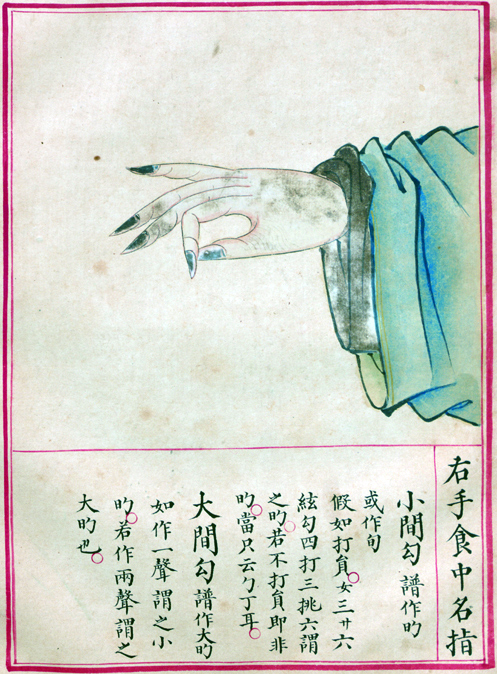 右手食中名指
小間勾 譜作旳
或作句
假如打員。女三艹六
絃勾四打三挑六謂
之旳。若不打員即非
旳。當只云勹丁耳。
大間勾 譜作大旳
如作一聲謂之小
旳。若作兩聲謂之
大旳也。